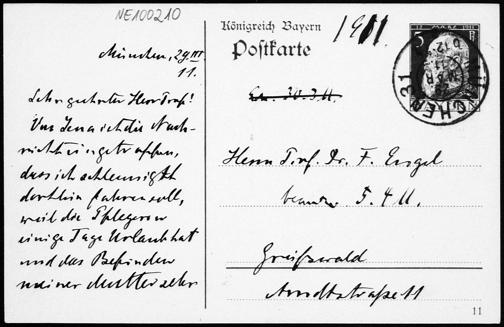 NE100210
München, 29 III
11.
Sehr geehrter Herr Prof.!
Von Jena ist die Nach-
richt eingetroffen,
dass ich schleunigst
dorthin fahren soll,
weil die Pflegerin
einige Tage Urlaub hat
und das Befinden
meiner Mutter sehr
Königreich Bayern
1911.
Postkarte
30.3.11.
Herrn Prof. Dr. F. Engel
5.4 11.
Greifswald
Arndtstraße 11
11
5
MÜNCHEN 31